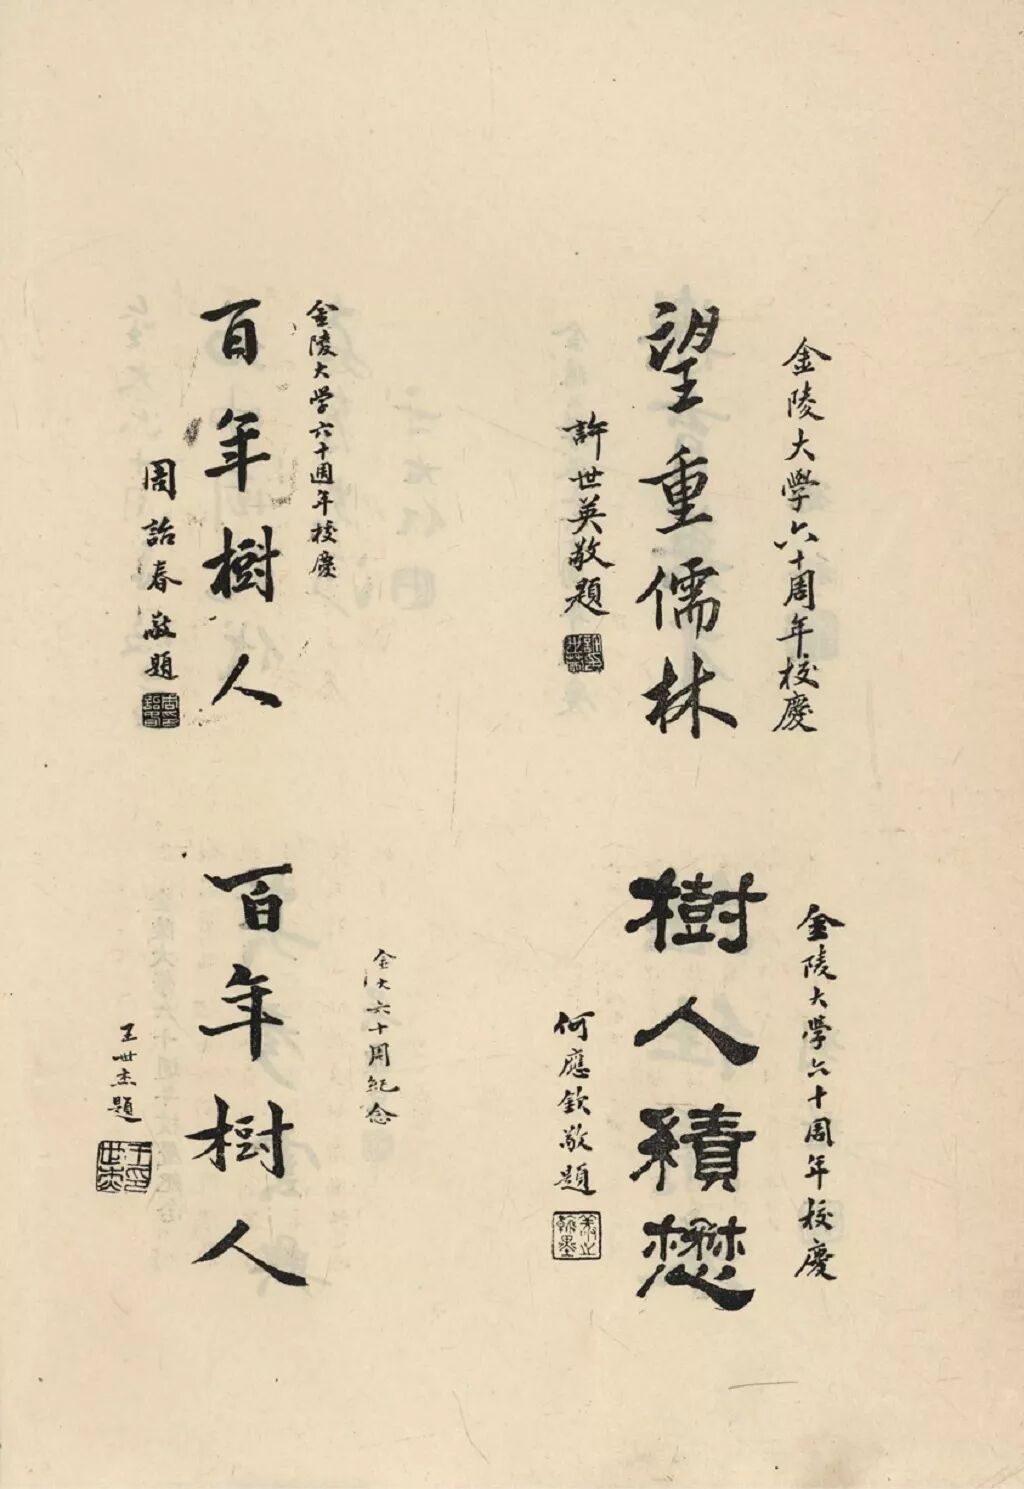 金陵大學六十周年校慶
望重儒林
許世英敬題
金陵大學六十周年校慶
樹人積懋
何應欽敬題
金陵大学六十週年校慶
百年樹人
周詒春敬題
金大六十周紀念
百年樹人
王世杰題